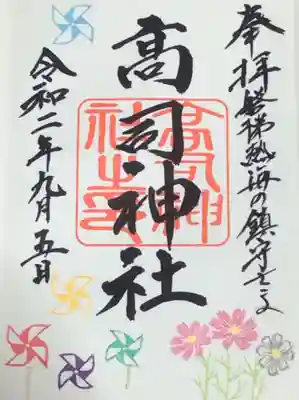 奉拝 磐梯熱海の鎮守さま
高司神社
高司神
社之印
令和二年九月五日